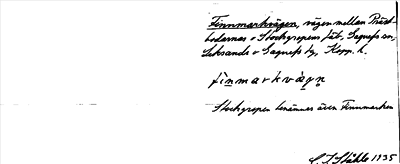 Finnmarkvägen, vägen mellan Präst-
bodarnas o Stockgropens fäb, Gagnefs sn,
Leksands o Gagnefs tg, Kopp. l.
finmarkvägn
Stockgropen benämnes även Finnmarken
C. I. Ståhle 1935